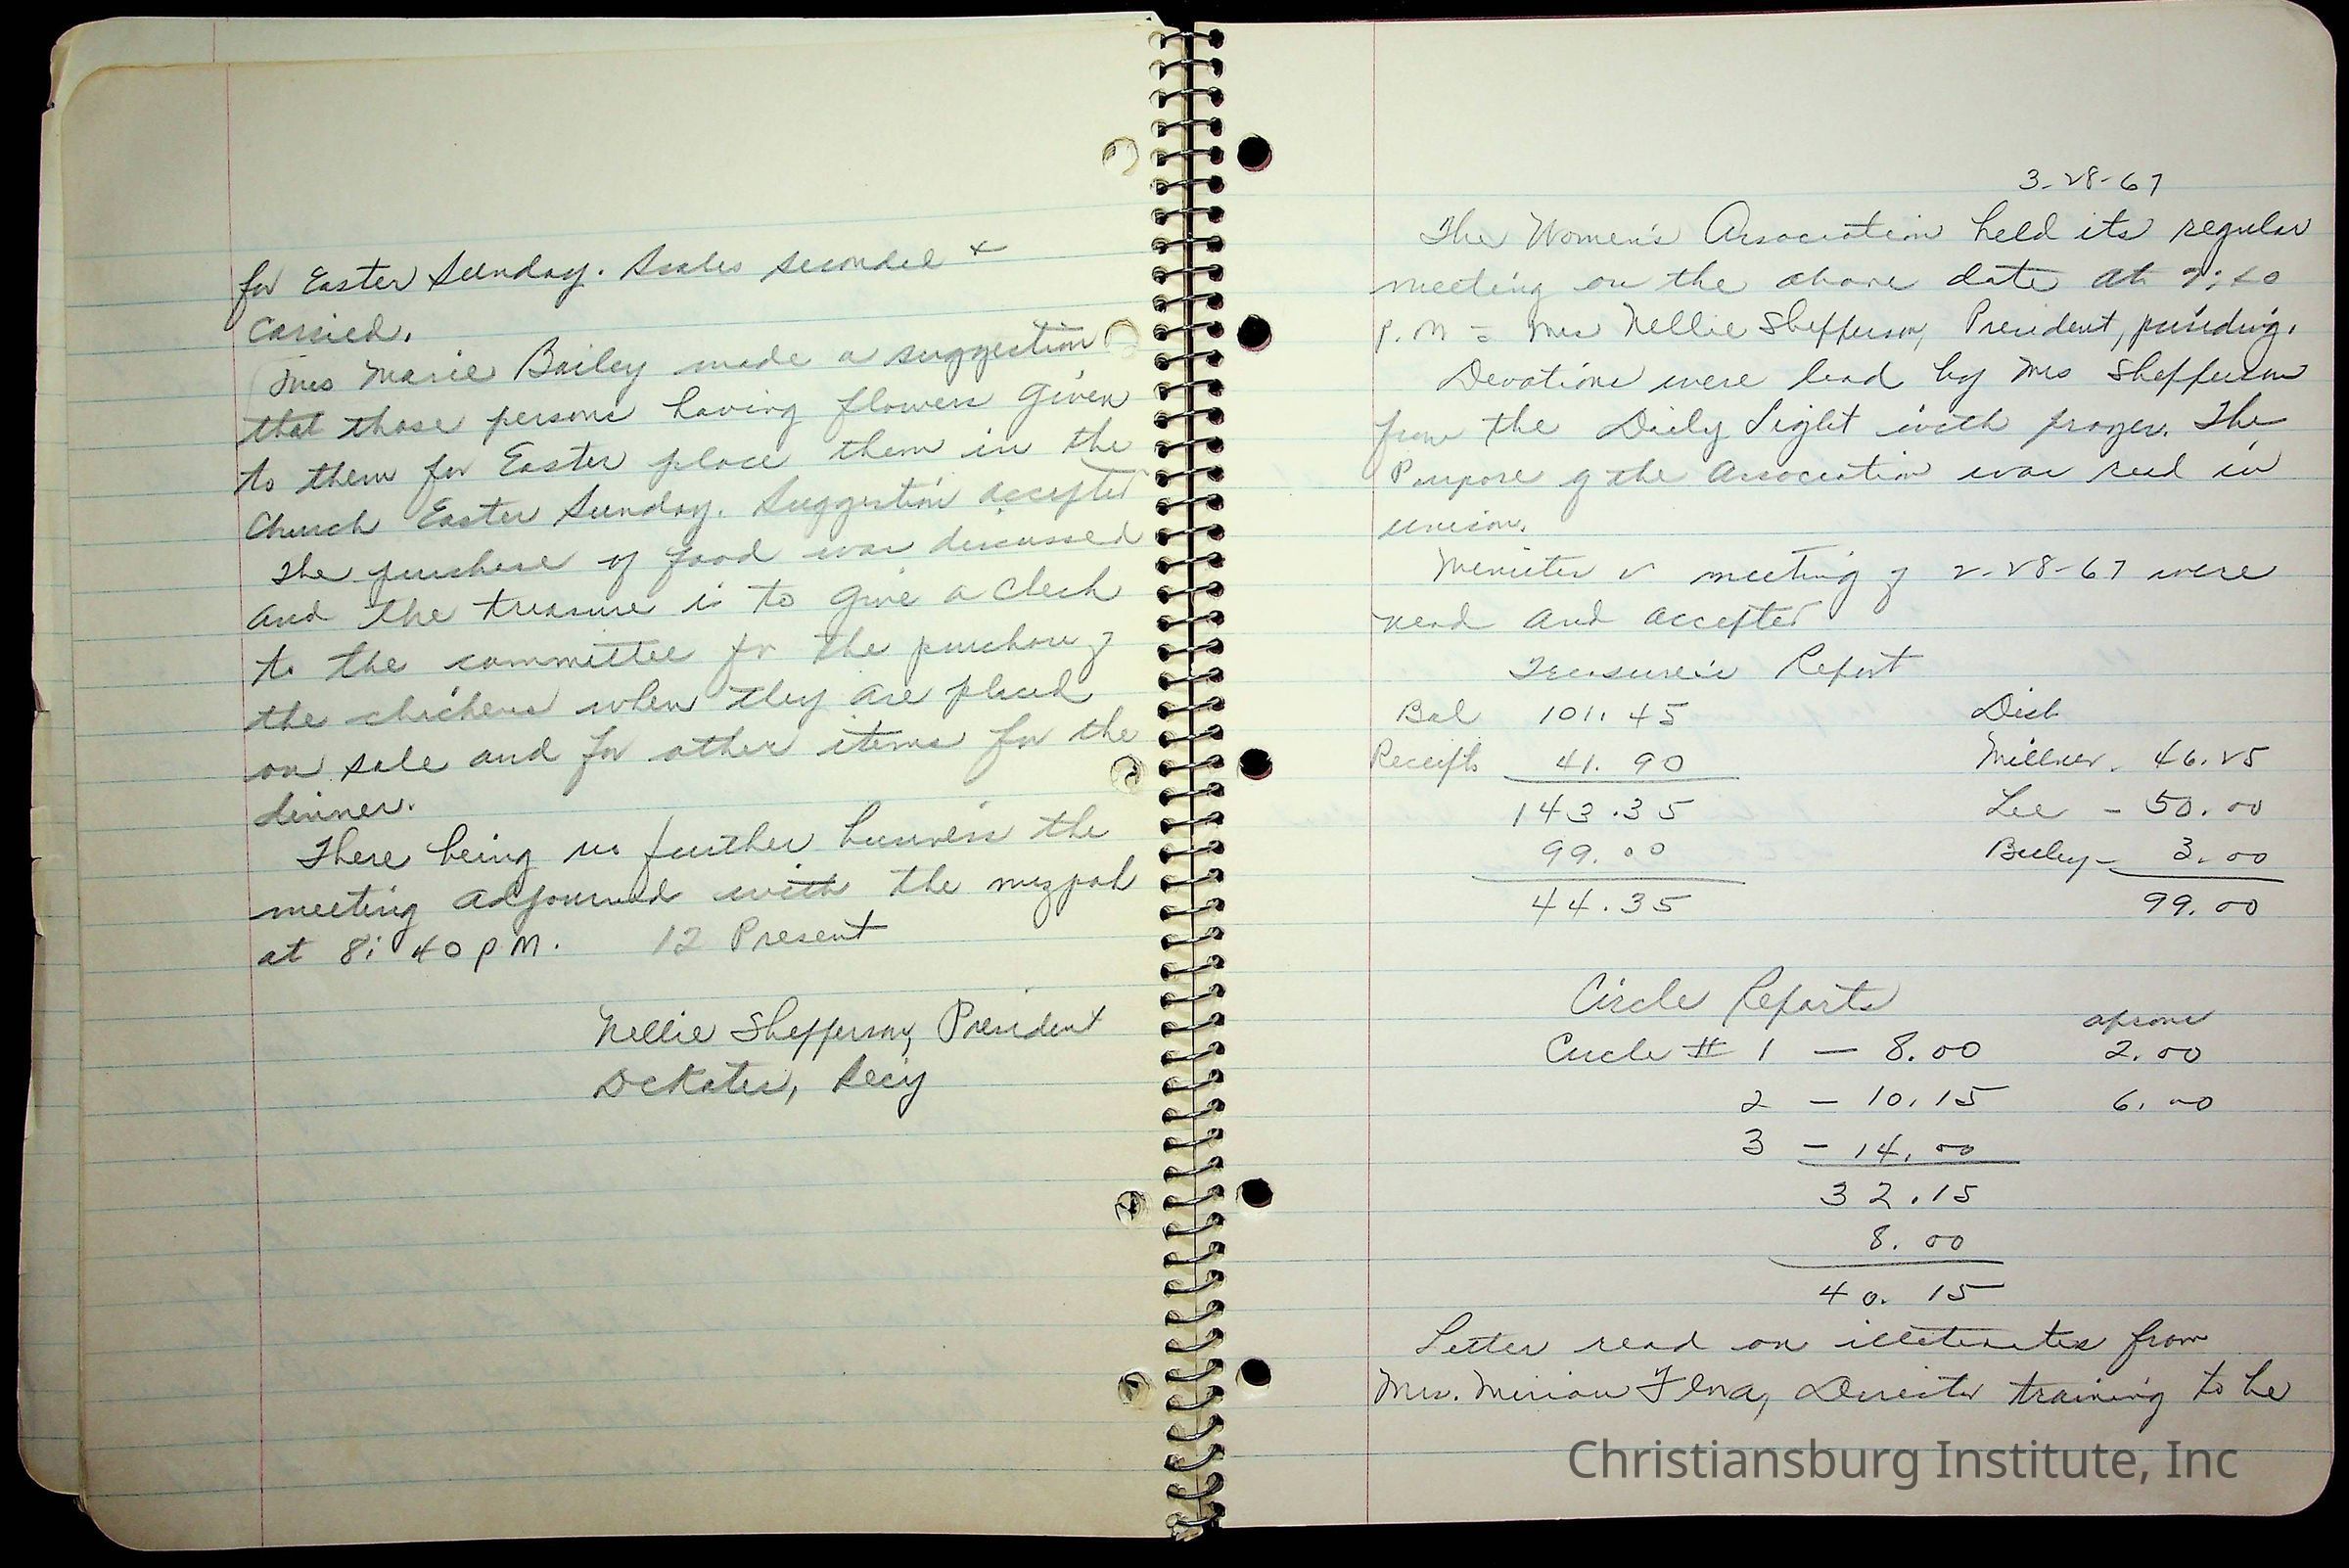 for Easter Sunday. Scales seconded +
carried.
Mrs Marie Bailey made a suggestion
that those persons having flowers given
to them for Easter place them in the
Church Easter Sunday. Suggestion accepted
The purchase of food was discussed
and the treasure is to give a check
to the committee for the purchase of
the chickens when they are placed
on sale and for other items for the
dinner.
There being no further business the
meeting adjourned with the mizpah
at 8:40 PM. 12 Present
Nellie Shefferson, President
Secy
3-28-67
The Women's Association held its regular
meeting on the above date at
P.M = Mrs Nellie Shefferson, President, presiding.
Devotions were lead by Mrs Shefferson
from the Daily Light with prayer. The
Purpose of the Association was read in
unison.
meeting of 2-28-67 were
read and accepted
Treasure's Report
Bal 101.45
Receipts 41.90
143.35
99.00
44.35
Disb
Millner. 46.25
Lee - 50.00
Bailey - 3.00
99.00
Circle Reports
aprons
Circle # 1 - 8.00 2.00
2 - 10.15 6.00
3 - 14.00
32.15
8.00
40.15
Letter read on illiterates from
Mrs. Flora, Director training to be
Christiansburg Institute, Inc